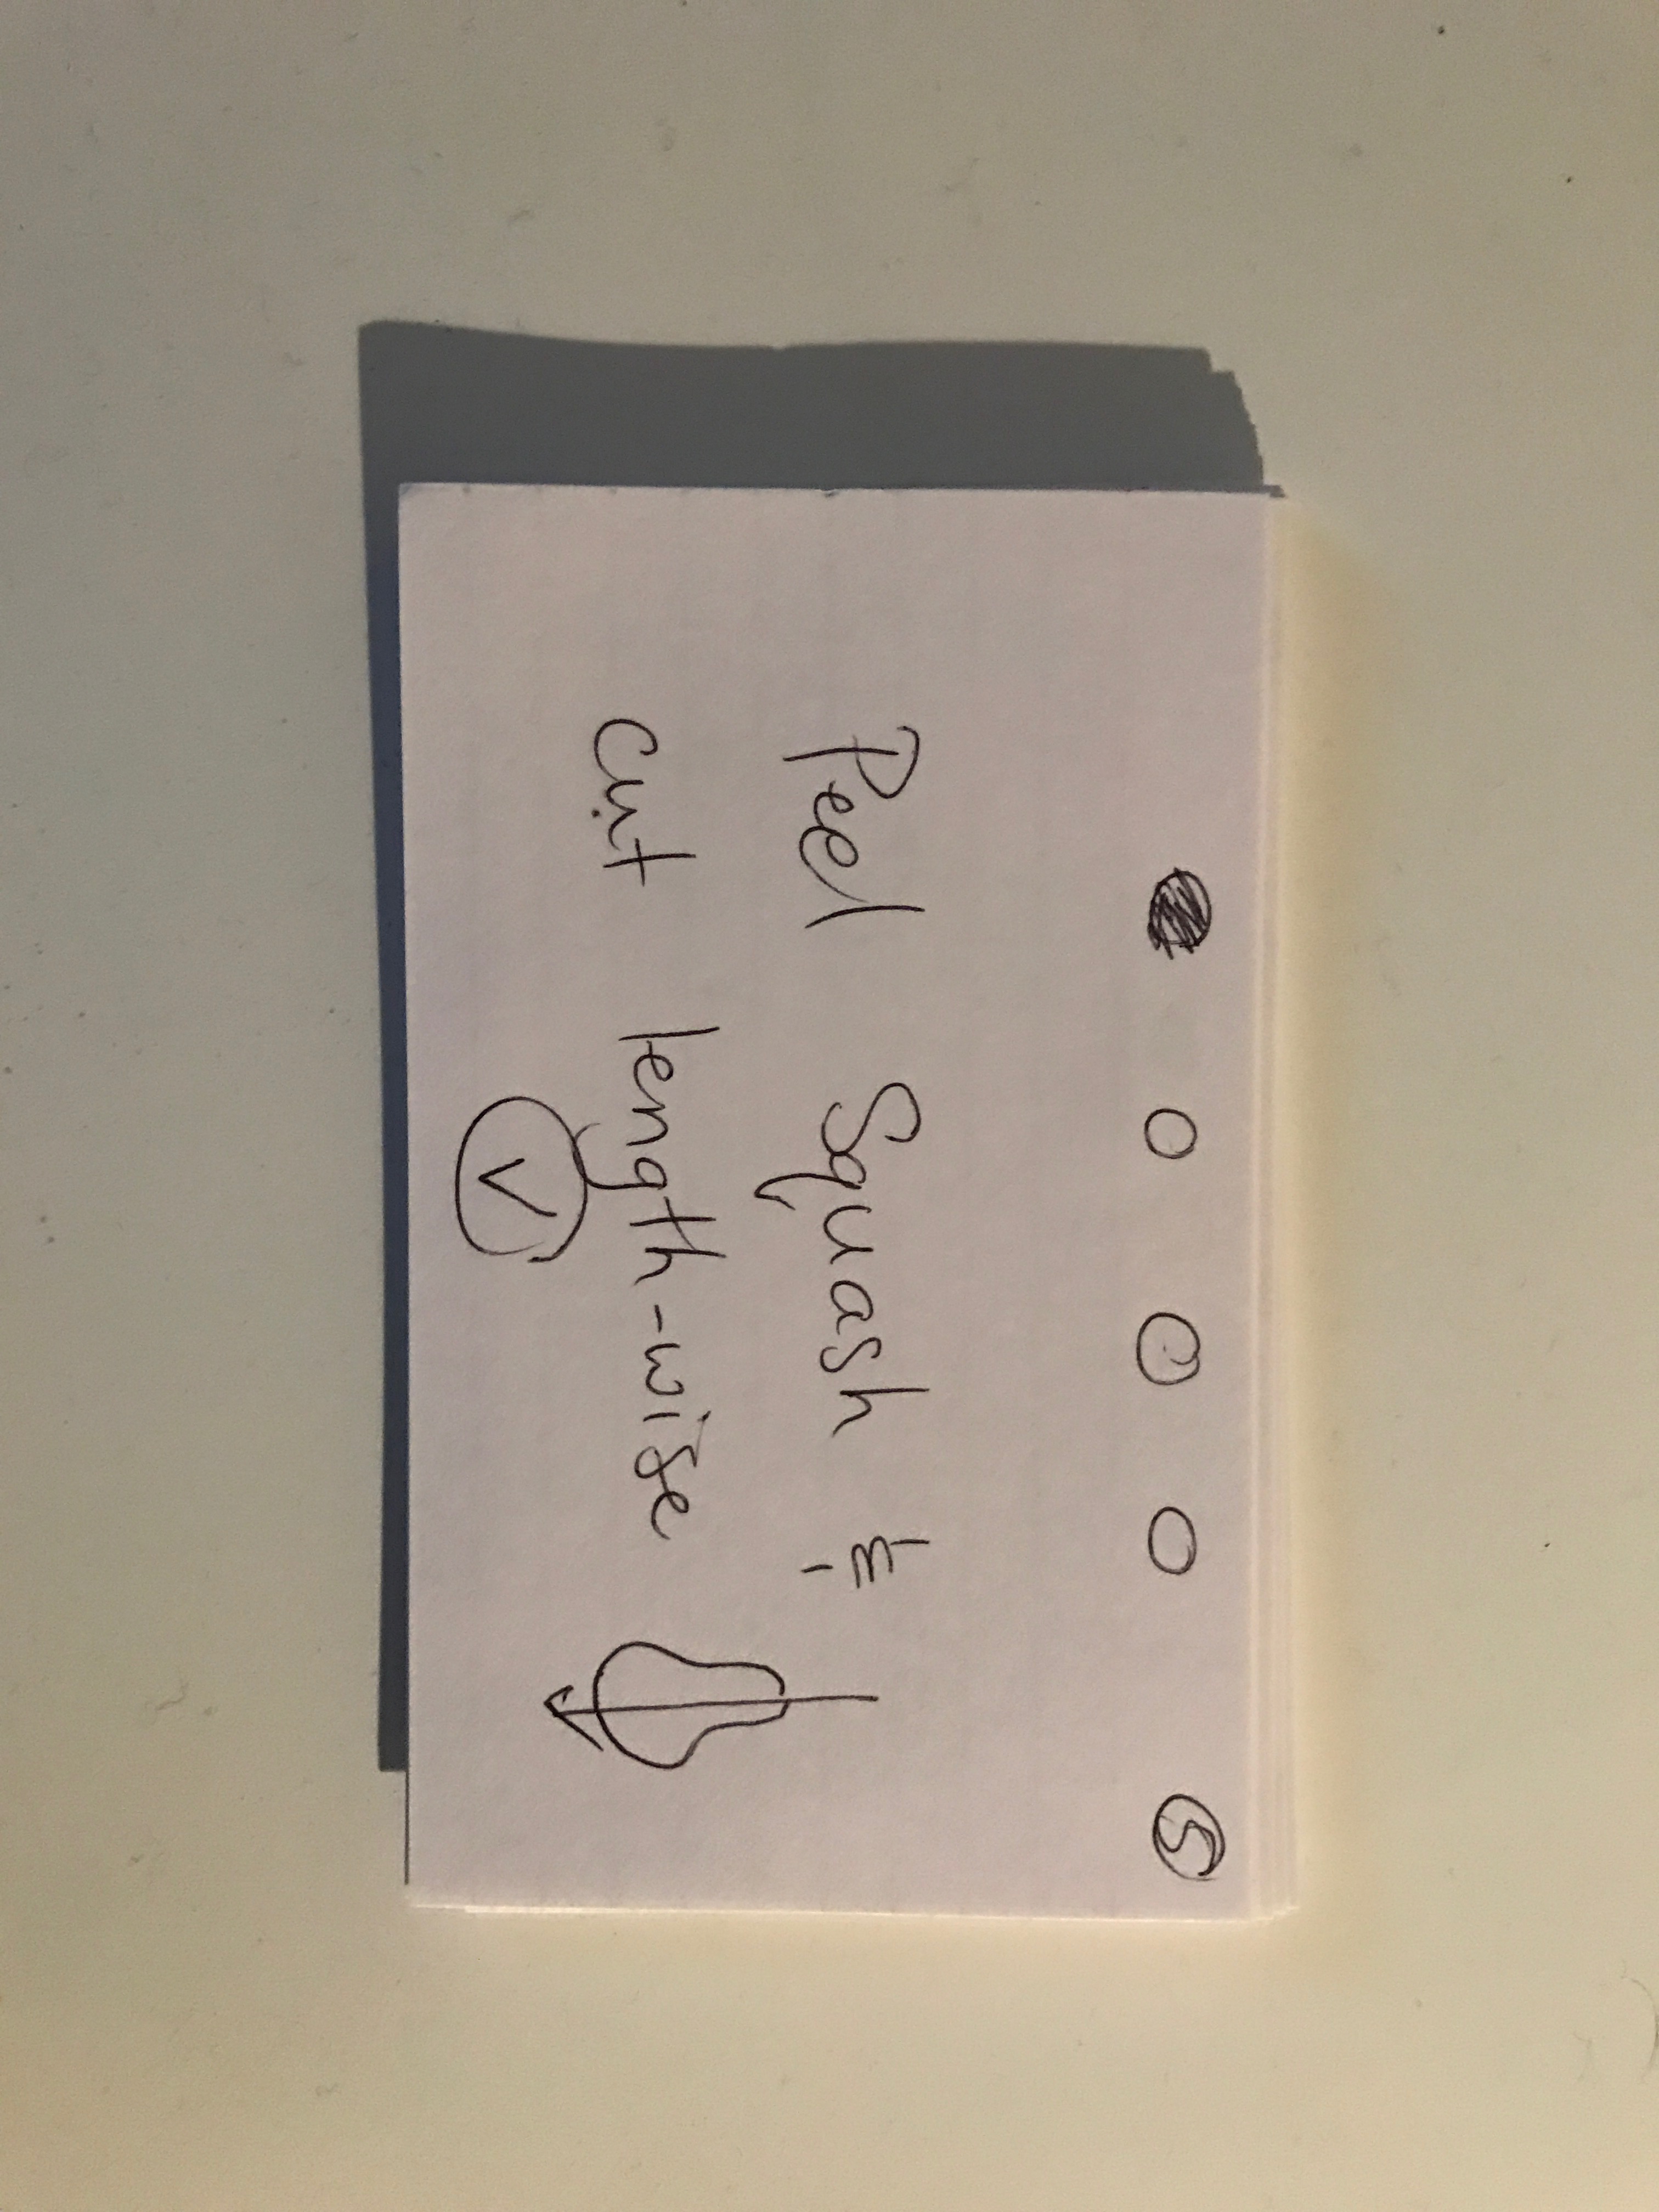 5
Peel Squash &
cut length-wise